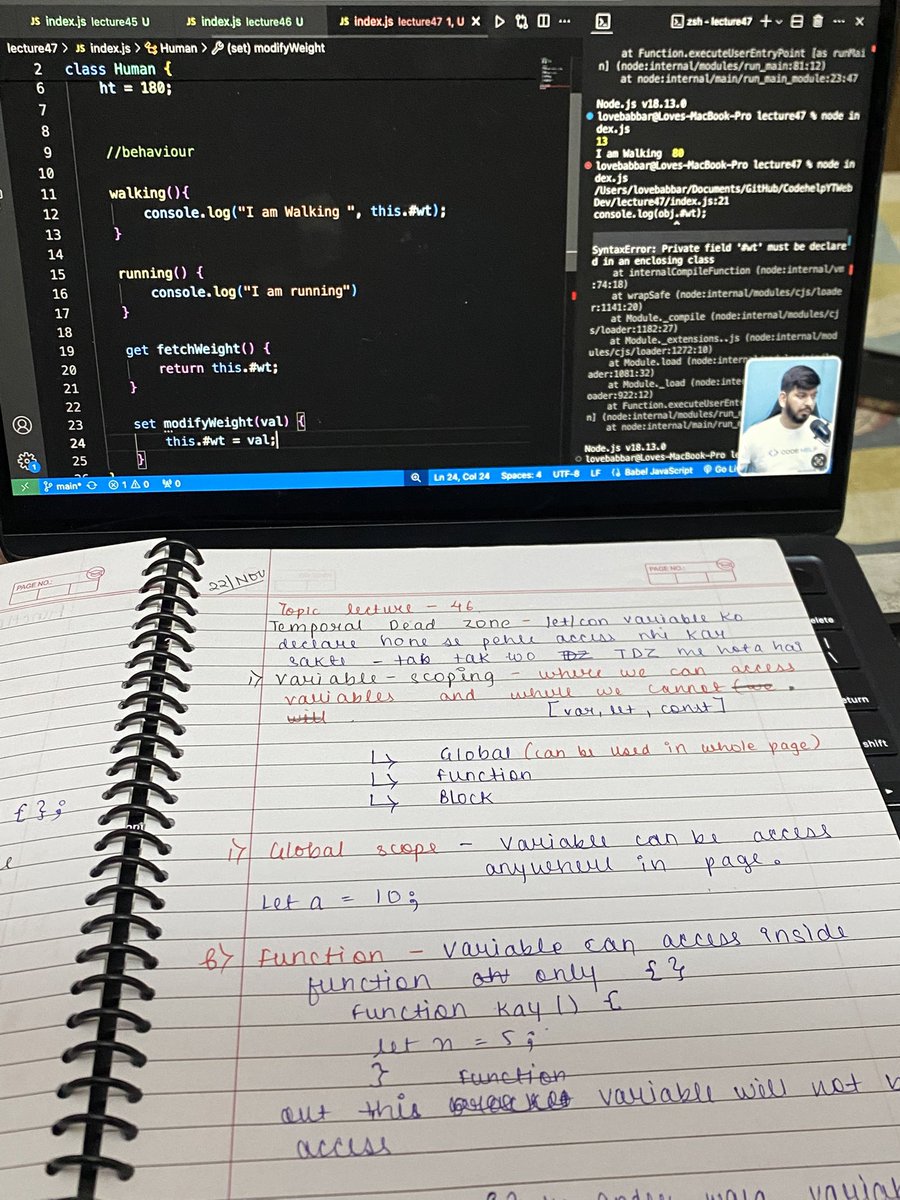 JS index.js lecture45 U
JS index.js lecture46 U
JS index.js lecture47 1, U
zsh - lecture47
lecture47 > JS index.js > Human > (set) modifyWeight
2 class Human {
6 ht = 180;
7
8
9 //behaviour
10
11 walking(){
12 console.log("I am Walking ", this.#wt);
13 }
14
15 running() {
16 console.log("I am running")
17 }
18
19 get fetchWeight() {
20 return this.#wt;
21 }
22
23 set modifyWeight(val) {
24 this.#wt = val;
25 }
main* 1 0 0
Ln 24, Col 24 Spaces: 4 UTF-8 LF Babel JavaScript Go Li
at Function.executeUserEntryPoint [as runMai
n] (node:internal/modules/run_main:81:12)
at node:internal/main/run_main_module:23:47
Node.js v18.13.0
lovebabbar@Loves-MacBook-Pro lecture47 % node in
dex.js
13
I am Walking 80
lovebabbar@Loves-MacBook-Pro lecture47 % node in
dex.js
/Users/lovebabbar/Documents/GitHub/CodehelpYTWeb
Dev/lecture47/index.js:21
console.log(obj.#wt);
^
SyntaxError: Private field '#wt' must be declare
d in an enclosing class
at internalCompileFunction (node:internal/vm
:74:18)
at wrapSafe (node:internal/modules/cjs/loade
r:1141:20)
at Module._compile (node:internal/modules/cj
s/loader:1182:27)
at Module._extensions..js (node:internal/mod
ules/cjs/loader:1272:10)
at Module.load (node:inter
ader:1081:32)
at Module._load (node:inte
oader:922:12)
at Function.executeUserEnt
n] (node:internal/modules/run_
at node:internal/main/run_
Node.js v18.13.0
lovebabbar@Loves-MacBook-Pro le
CODE HELP
elete
eturn
shift
PAGE NO.:
PAGE NO.:
22/NOV
Topic lecture - 46
Temporal Dead Zone - let/con variable ko
declare hone se pehle access nhi kar
sakte - tab tak wo TDZ TDZ me hota hai
i) Variable - scoping - where we can access
variables and where we cannot .
will [var, let, const]
↳ Global (can be used in whole page)
↳ function
↳ Block
{ } ;
i) Global scope - variable can be access
anywhere in page.
Let a = 10;
B) Function - variable can access inside
function only { }
function kay () {
let n = 5;
} function
out this variable will not
access